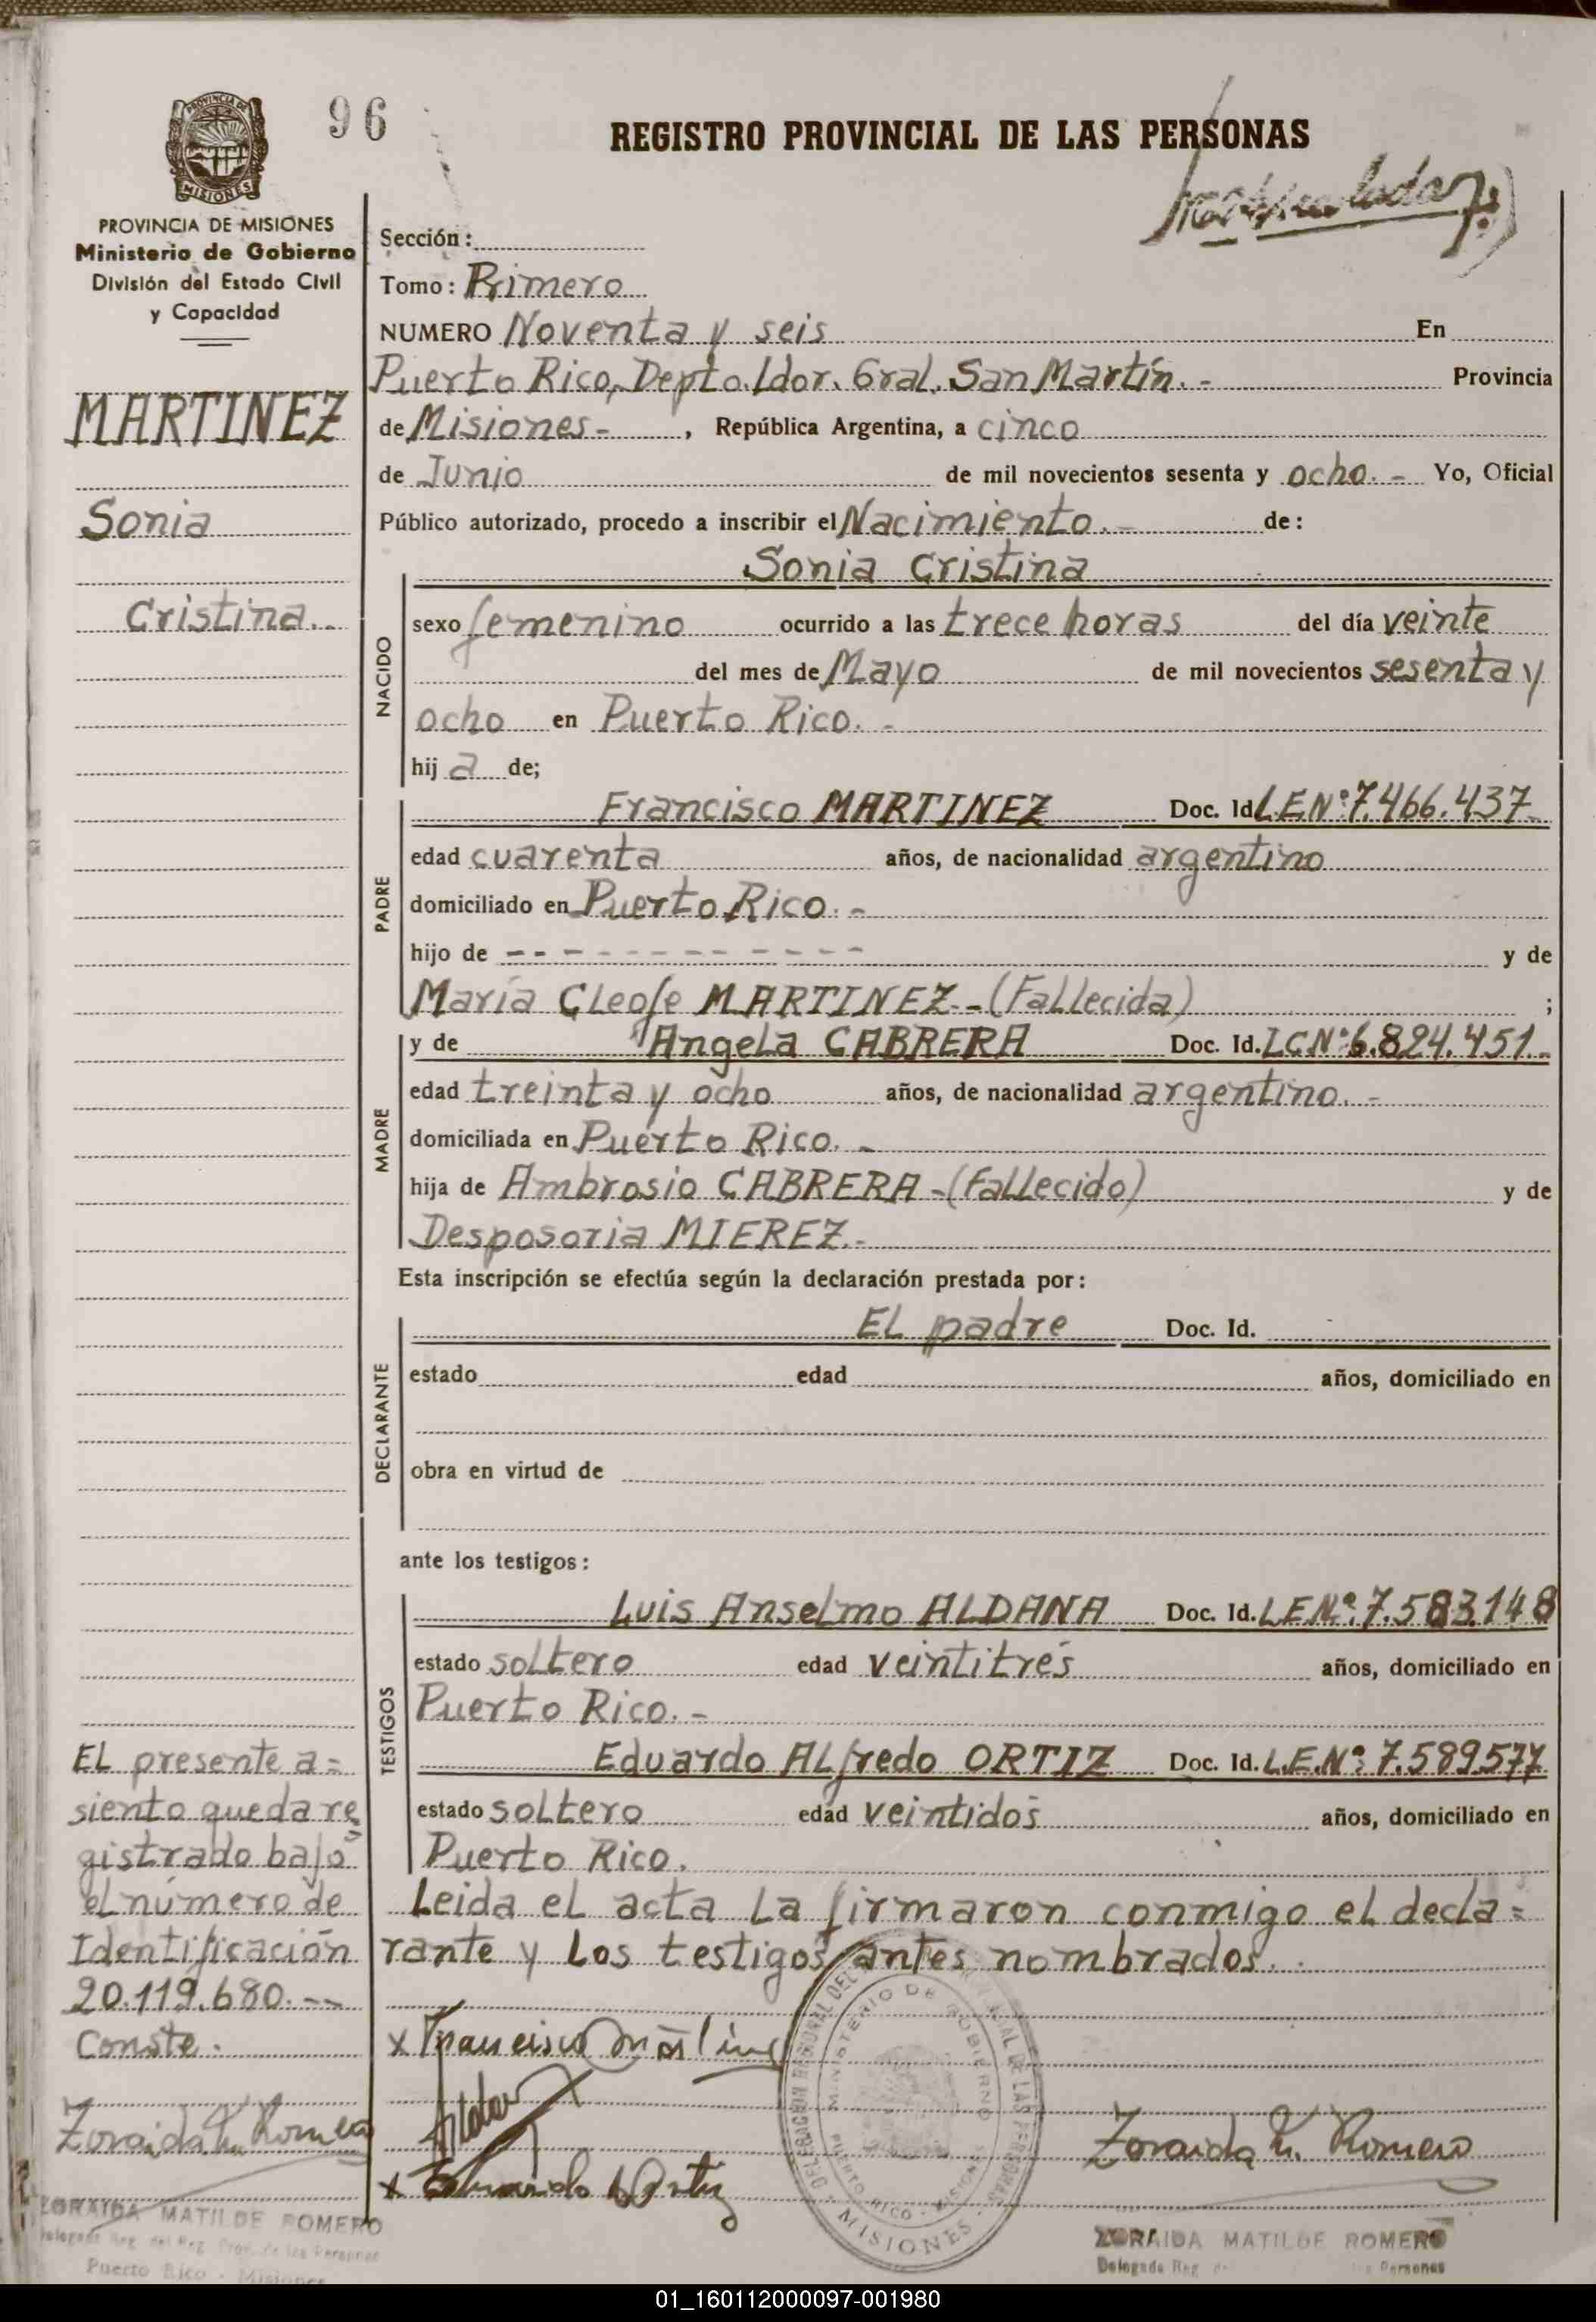 96
REGISTRO PROVINCIAL DE LAS PERSONAS
PROVINCIA DE MISIONES
MISIONES
PROVINCIA DE MISIONES
Ministerio de Gobierno
División del Estado Civil
y Capacidad
MARTINEZ
Sonia
Cristina.-
Sección:
Tomo: Primero
NUMERO Noventa y seis En
Puerto Rico, Depto. Ldor. Gral. San Martín.- Provincia
de Misiones-, República Argentina, a cinco
de Junio de mil novecientos sesenta y ocho.- Yo, Oficial
Público autorizado, procedo a inscribir el Nacimiento.- de:
Sonia Cristina
NACIDO
sexo femenino ocurrido a las trece horas del día veinte
del mes de Mayo de mil novecientos sesenta y
ocho en Puerto Rico.-
hij a de;
PADRE
Francisco MARTINEZ Doc. Id L.E.Nº:7.466.437-
edad cuarenta años, de nacionalidad argentino
domiciliado en Puerto Rico.-
hijo de - - - - - - - - - - - - y de
María Cleofe MARTINEZ.-(Fallecida) ;
MADRE
y de Angela CABRERA Doc. Id. L.C.Nº:6.824.451.-
edad treinta y ocho años, de nacionalidad argentino.-
domiciliada en Puerto Rico.-
hija de Ambrosio CABRERA-(Fallecido) y de
Desposoria MIEREZ.-
Esta inscripción se efectúa según la declaración prestada por:
DECLARANTE
El padre Doc. Id.
estado edad años, domiciliado en
obra en virtud de
ante los testigos:
TESTIGOS
Luis Anselmo ALDANA Doc. Id. L.E.Nº:7.583.148
estado soltero edad veintitrés años, domiciliado en
Puerto Rico.-
Eduardo Alfredo ORTIZ Doc. Id. L.E.Nº:7.589577
estado soltero edad veintidos años, domiciliado en
Puerto Rico.
Leida el acta la firmaron conmigo el decla=
rante y los testigos antes nombrados.
El presente a=
siento queda re=
gistrado bajo
el número de
Identificación
20.119.680.--
Conste.
Zoraida M. Romero
ZORAIDA MATILDE ROMERO
Delegada Reg. del Reg. Prov. de las Personas
Puerto Rico - Misiones
x Francisco Martinez
Aldana
x Eduardo A Ortiz
MINISTERIO DE GOBIERNO
PUERTO RICO - MISIONES
MISIONES
Zoraida M. Romero
ZORAIDA MATILDE ROMERO
Delegada Reg. Personas
01_160112000097-001980